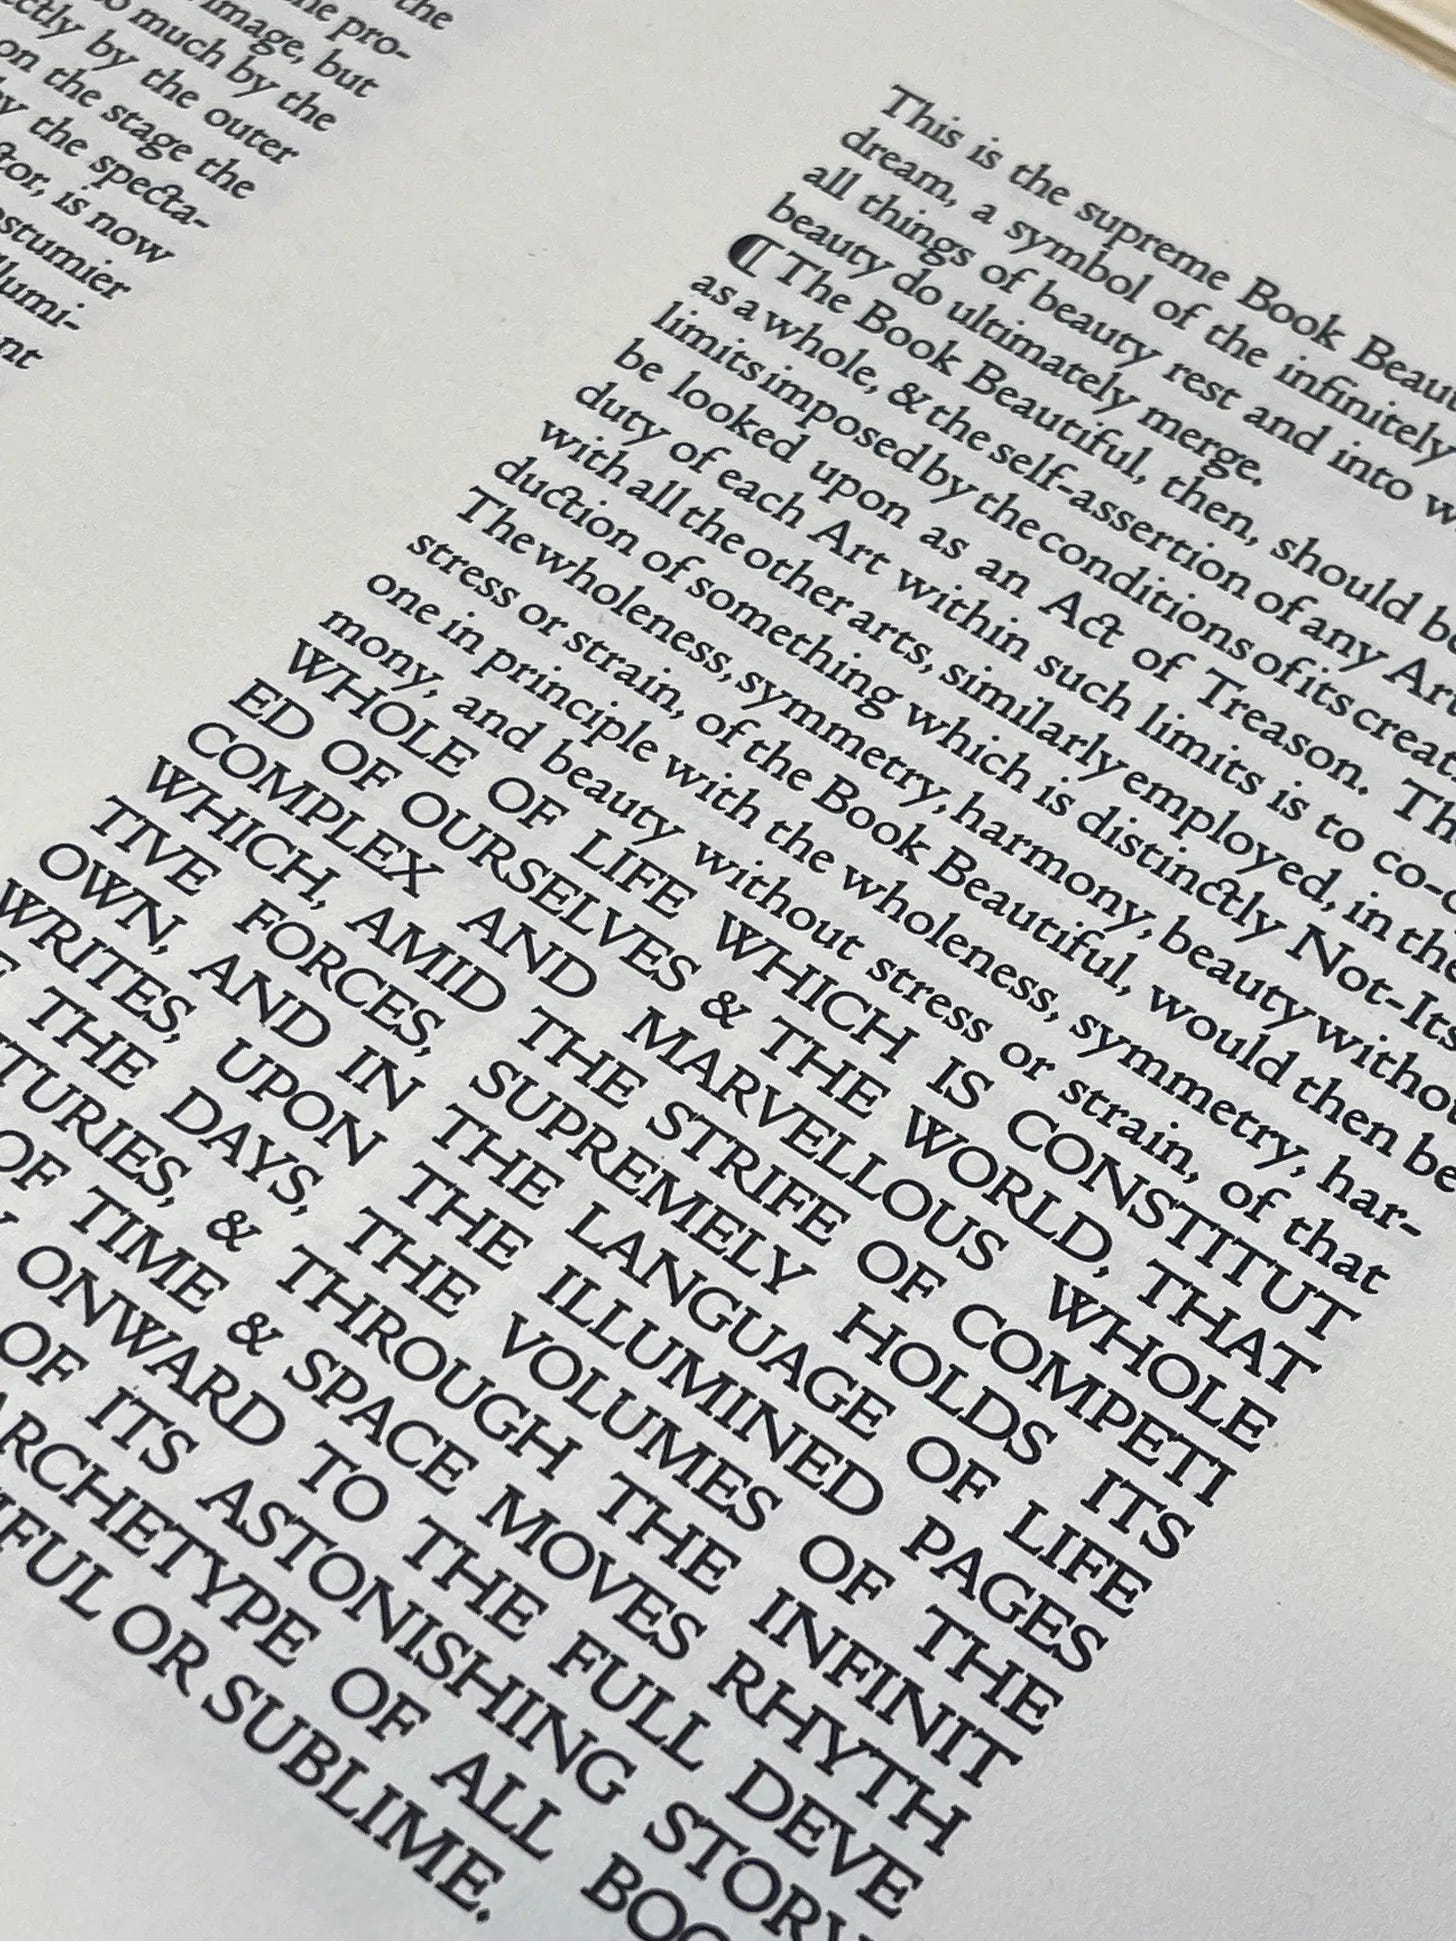 the
the pro-
image, but
much by the
by the outer
on the stage the
the specta-
is now
This is the supreme Book
dream, a symbol of the infinitely
all things of beauty rest and into
beauty do ultimately merge.
¶ The Book Beautiful, then, should
as a whole, & the self-assertion of any
limits imposed by the conditions of its
be looked upon as an Act of Treason.
duty of each Art within such limits is to
with all the other arts, similarly employed, in the
duction of something which is distinctly
The wholeness, symmetry, harmony, beauty
stress or strain, of the Book Beautiful, would then be
one in principle with the wholeness, symmetry, har-
mony, and beauty without stress or strain, of that
WHOLE OF LIFE WHICH IS CONSTITUT
ED OF OURSELVES & THE WORLD, THAT
COMPLEX AND MARVELLOUS WHOLE
WHICH, AMID THE STRIFE OF COMPETI
TIVE FORCES, SUPREMELY HOLDS ITS
OWN, AND IN THE LANGUAGE OF LIFE
WRITES, UPON THE ILLUMINED PAGES
THE DAYS, THE VOLUMES OF THE
& THROUGH THE INFINIT
OF TIME & SPACE MOVES RHYTH
ONWARD TO THE FULL DEVE
OF ITS ASTONISHING STORY
ARCHETYPE OF ALL
OR SUBLIME.